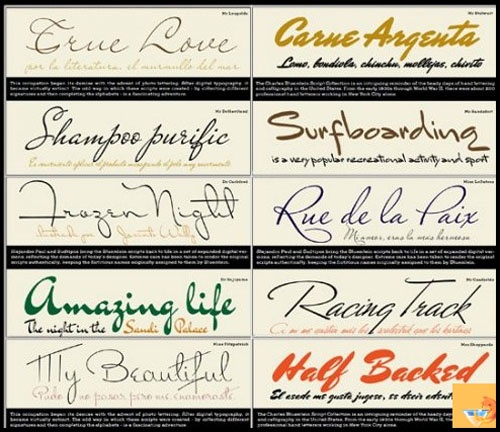 True Love
por la literatura, el murmullo del mar
This occupation began its demise with the advent of photo lettering. After digital typography, it
became virtually extinct. The old way in which these scripts were created - by collecting different
signatures and then completing the alphabets - is a fascinating adventure.
Mr Stalwart
Carne Argenta
Lomo, bondiola, chinchu, mollejas, chivito
The Charles Bluestein Script Collection is an intriguing reminder of the heady days of hand lettering
and calligraphy in the United States. From the early 1930s through World War II, there were about 200
professional hand letterers working in New York City alone.
Shampoo purific
Mr Sandsfort
Surfboarding
is a very popular recreational activity and sport
Frozen Night
Alejandro Paul and Sudtipos bring the Bluestein scripts back to life in a set of expanded digital versions,
reflecting the demands of today's designer. Extreme care has been taken to render the original
scripts authentically, keeping the fictitious names originally assigned to them by Bluestein.
Rue de la Paix
Mi amor, eras la más hermosa
Alejandro Paul and Sudtipos bring the Bluestein scripts back to life in a set of expanded digital versions,
reflecting the demands of today's designer. Extreme care has been taken to render the original
scripts authentically, keeping the fictitious names originally assigned to them by Bluestein.
Amazing life
The night in the Sandi Palace
Mr Canfields
Racing Track
Miss Fitzpatrick
My Beautiful
Pudo no pasar pero me enamoraste
This occupation began its demise with the advent of photo lettering. After digital typography, it
became virtually extinct. The old way in which these scripts were created - by collecting different
signatures and then completing the alphabets - is a fascinating adventure.
Mrs Sheppards
Half Backed
The Charles Bluestein Script Collection is an intriguing reminder of the heady days
and calligraphy in the United States. From the early 1930s through World War II, there
professional hand letterers working in New York City alone.